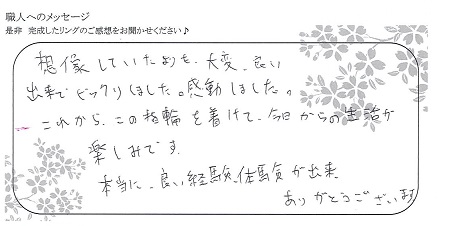 職人へのメッセージ
是非 完成したリングのご感想をお聞かせください♪
想像していたよりも、大変、良い
出来でビックリしました。感動しました。
これから、この指輪を着けて、今日からの生活が
楽しみです。
本当に、良い経験、体験が出来
ありがとうございます